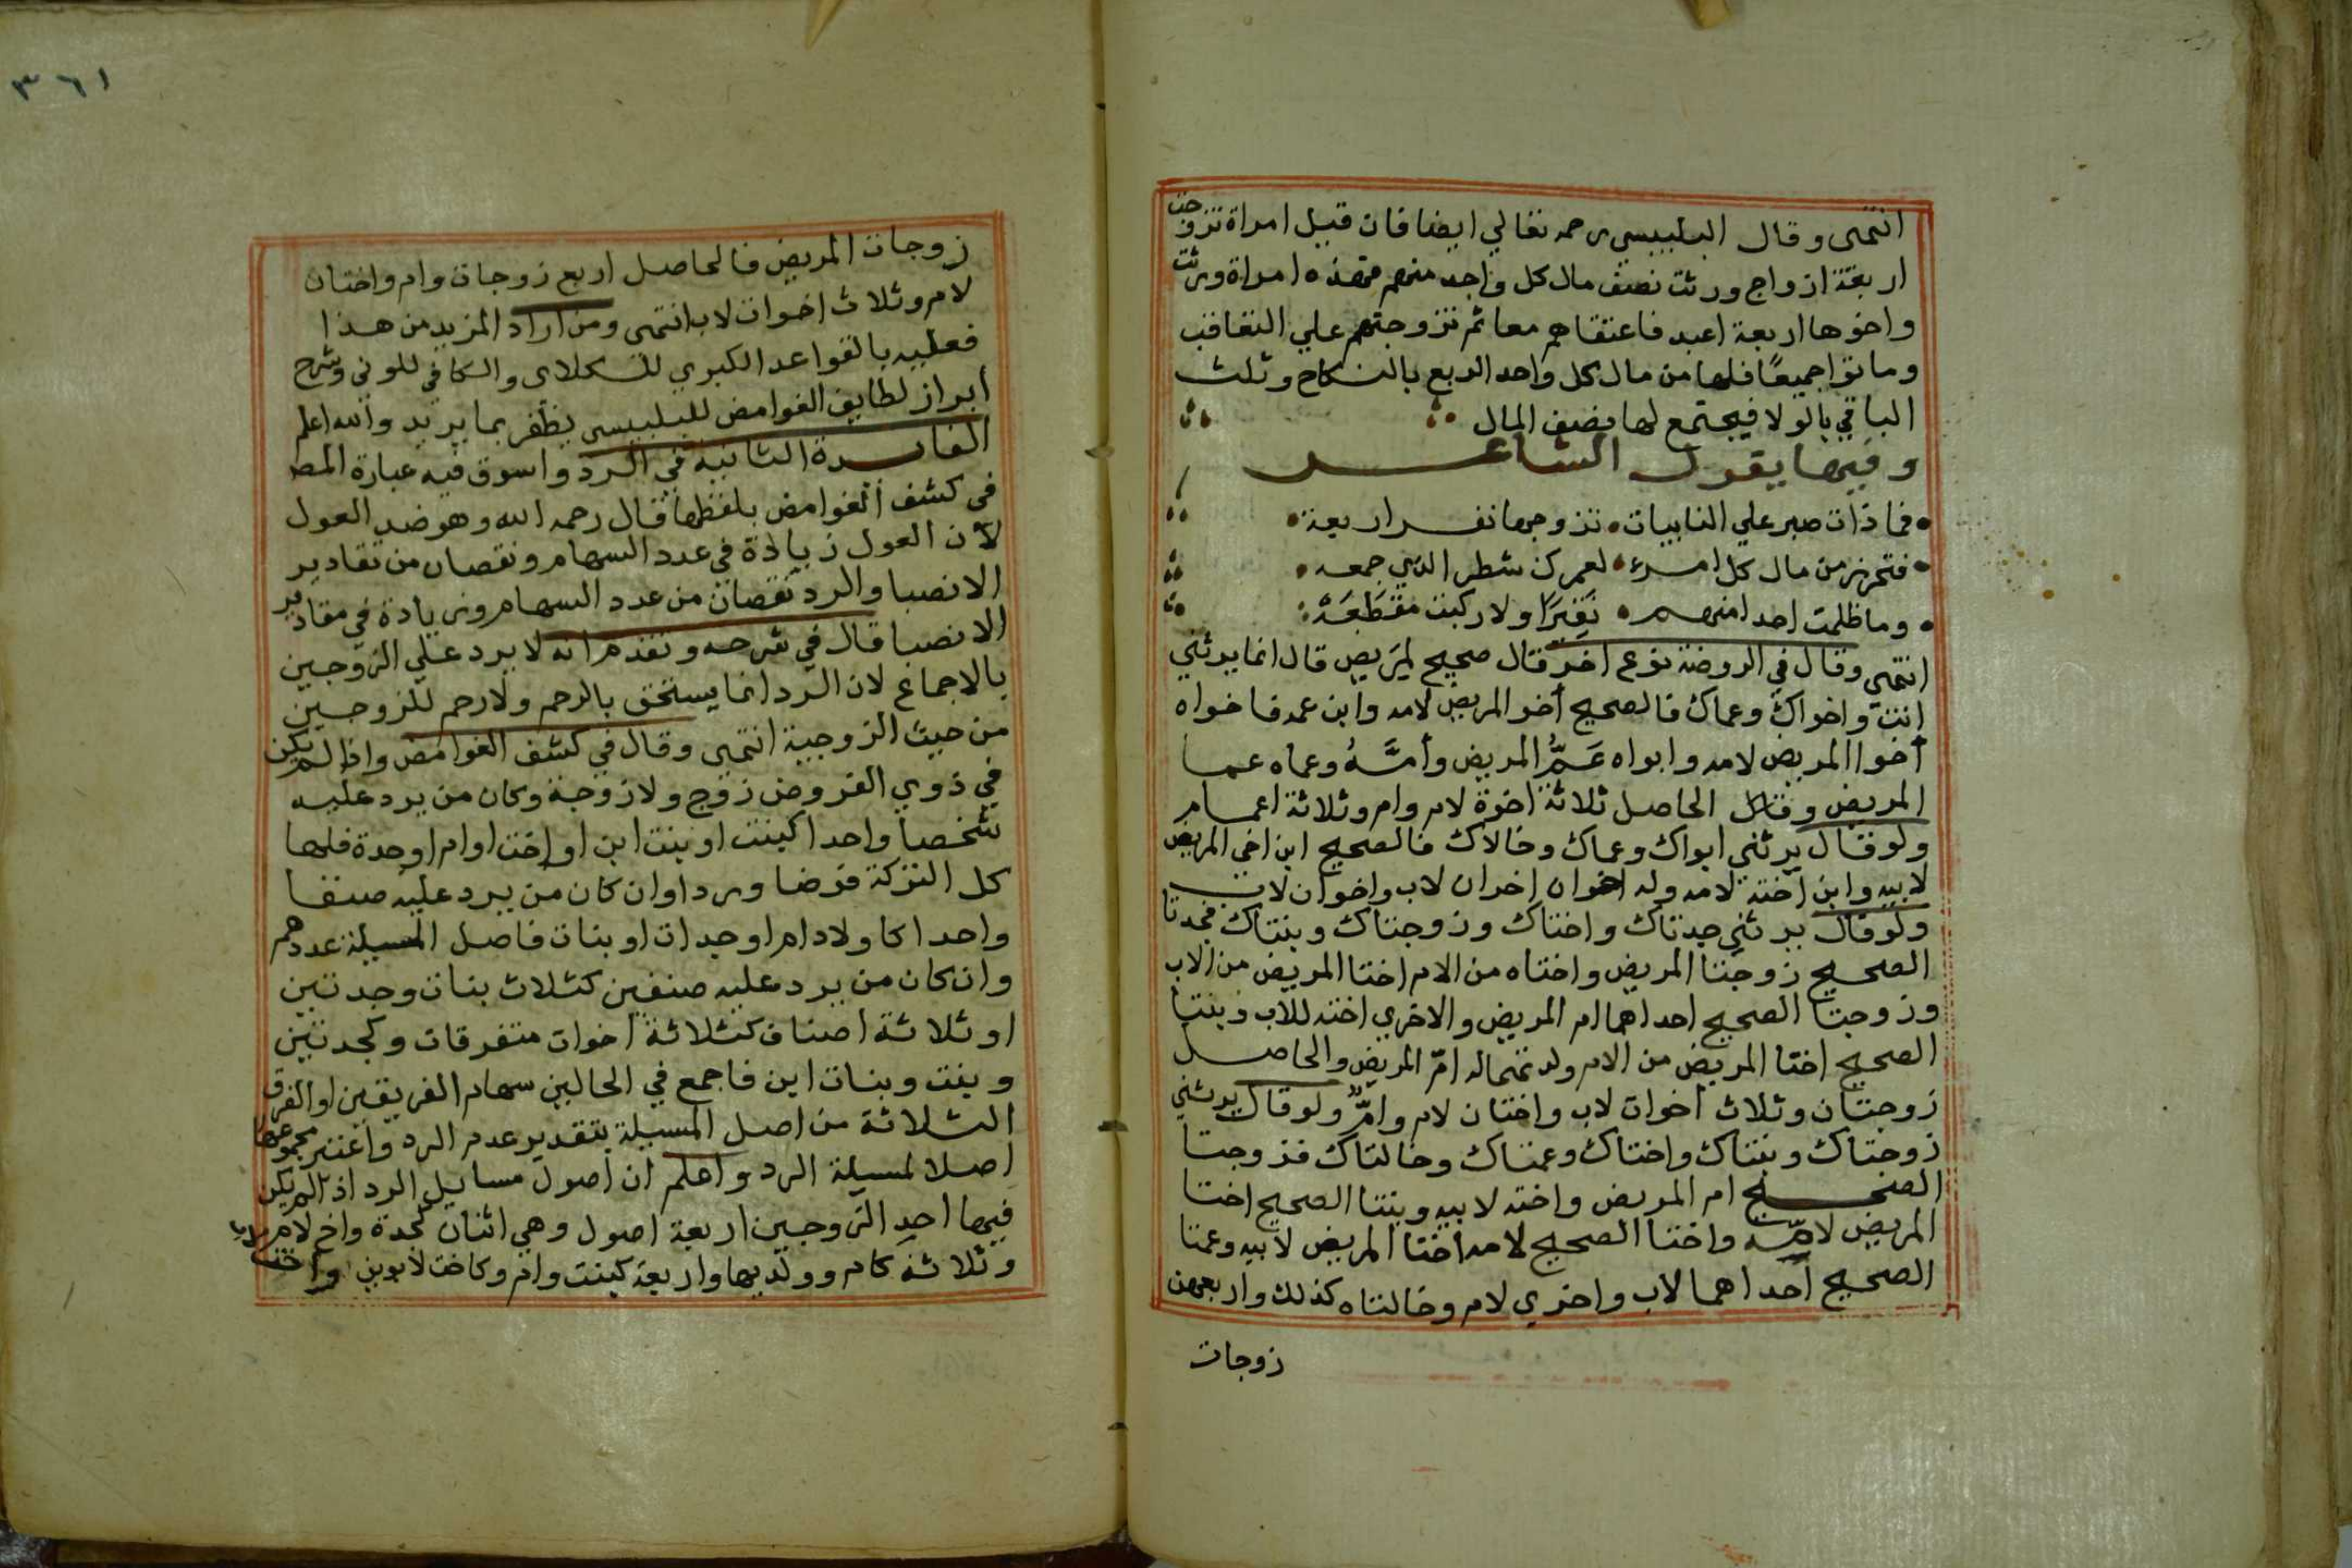 انتهى وقال البلبيسي رحمه تعالي ايضا فان قيل امراة تزوجت
اربعة ازواج ورثت نصف مال كل واحد منهم فهذه امراة ورثت
واخوها اربعة اعبد فاعتقاهم معا ثم تزوجتهم علي التعاقب
وماتوا جميعًا فلها من مال كل واحد الربع بالنكاح وثلث
الباقي بالولا فيجتمع لها نصف المال
وفيها يقول الشاعر
فما ذات صبر علي النايبات • تزوجها نفر اربعة •
فتحرز من مال كل امرء • لعمرك شطر الذي جمعه •
وما ظلمت احدا منهم • نَقِيرًا ولا ركبت مَقْطَعَة
انتهي وقال في الروضة نوع اخر قال صحيح لمريض قال انما يرثني
انت واخواك وعماك فالصحيح أخو المريض لامه وابن عمه فاخواه
أخوا المريض لامه وابواه عَمُّ المريض وأمَّهُ وعماه عما
المريض وقال الحاصل ثلاثة اخوة لام وام وثلاثة اعمام
ولو قال يرثني ابواك وعماك وخالاك فالصحيح ابن اخي المريض
لابيه وابن اخته لامه وله اخوان اخوان لاب واخوان لاب
ولو قال يرثني جدتاك واختاك وزوجتاك وبنتاك فجدتا
الصحيح زوجتا المريض واختاه من الام اختا المريض من الاب
وزوجتا الصحيح احداهما ام المريض والاخري اخته للاب وبنتا
الصحيح اختا المريض من الام ولدتهما له امّ المريض والحاصل
زوجتان وثلاث أخوات لاب واختان لام وامٌّ ولو قال يرثني
زوجتاك وبنتاك واختاك وعمتاك وخالتاك فزوجتا
الصحيح ام المريض واخته لابيه وبنتا الصحيح اختا
المريض لامّه واختا الصحيح لامه اختا المريض لابيه وعمتا
الصحيح أحداهما لاب واخري لام وخالتاه كذلك واربعهن
زوجات
٣٦١
زوجات المريض فالحاصل اربع زوجات وام واختان
لام وثلاث اخوات لاب انتهى ومن اراد المزيد من هذا
فعليه بالقواعد الكبري للكلاى والكافي للوني وشرح
أبراز لطايف الغوامض للبلبيسي يظفر بما يريد والله اعلم
الفايدة الثانية في الرد واسوق فيه عبارة المص
في كشف الغوامض بلفظها قال رحمه الله وهو ضد العول
لآن العول زيادة في عدد السهام ونقصان من تقادير
الانصبا والرد نقصان من عدد السهام وزيادة في مقادير
الانصبا قال في شرحه وتقدم انه لا يرد علي الزوجين
بالاجماع لان الرد انما يستحق بالرحم ولا رحم للزوجين
من حيث الزوجية انتهى وقال في كشف الغوامض واذا لم يكن
في ذوي الفروض زوج ولا زوجة وكان من يرد عليه
شخصا واحدا كبنت او بنت ابن او اخت او ام او جدة فلها
كل التركة فرضا وردا وان كان من يرد عليه صنفا
واحدا كاولاد ام او جدات او بنات فاصل المسيلة عددهم
وان كان من يرد عليه صنفين كثلاث بنات وجدتين
او ثلاثة اصناف كثلاثة اخوات متفرقات وكجدتين
وبنت وبنات ابن فاجمع في الحالين سهام الفريقين او الفرق
الثلاثة من اصل المسيلة بتقدير عدم الرد واعتبر مجموعها
اصلا لمسيلة الرد واعلم ان اصول مسايل الرد اذا لم يكن
فيها احد الزوجين اربعة اصول وهي اثنان كجدة واخ لام
وثلاثة كام وولديها واربعة كبنت وام وكاخت لابوين واخت